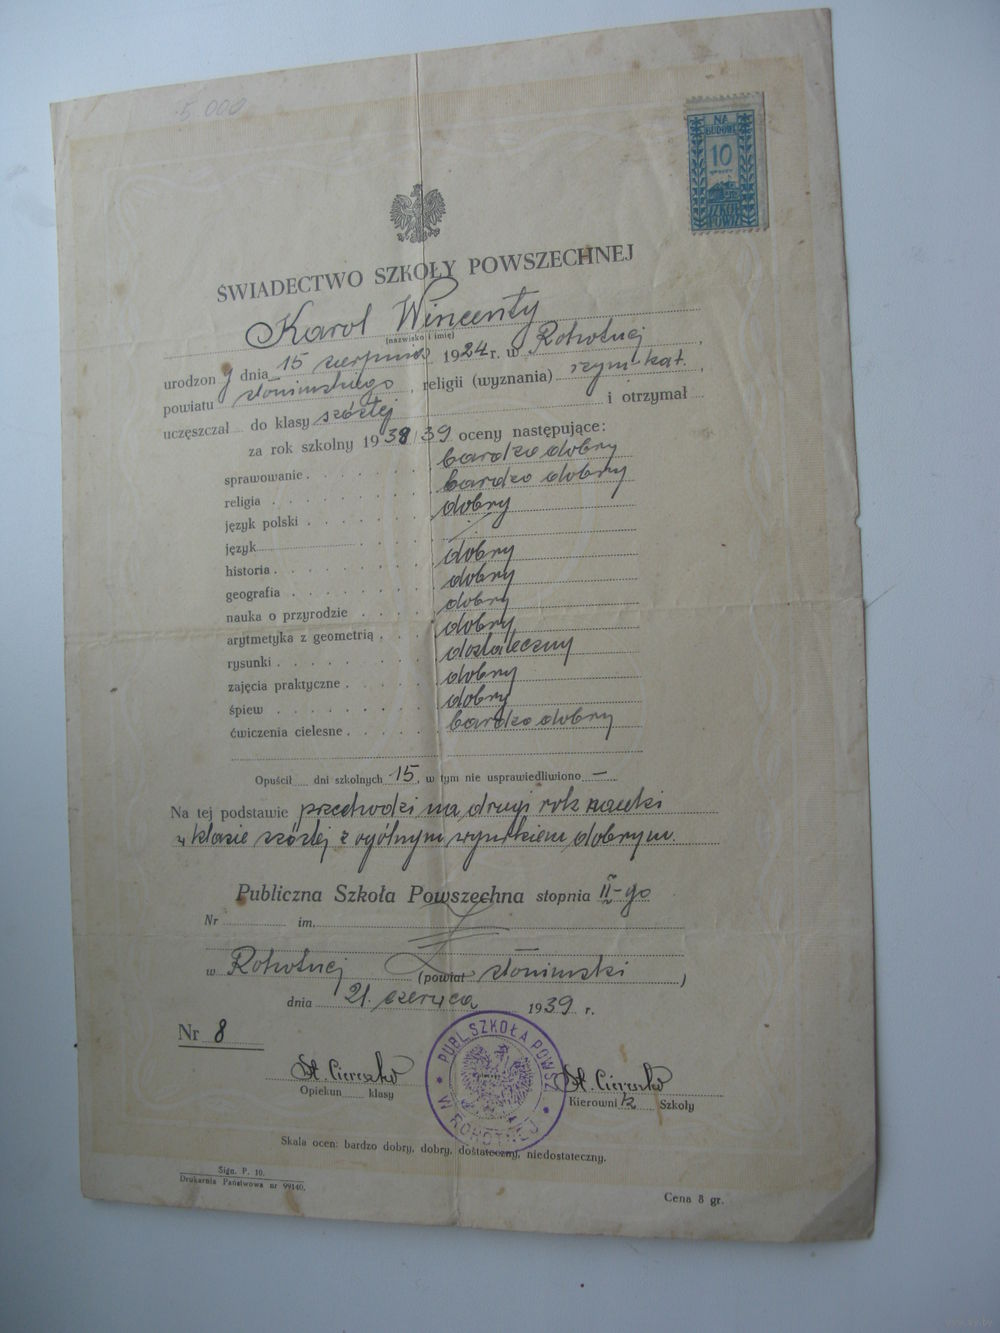 5.000
NA
BUDOWĘ
10
SZKÓŁ
POWSZ
ŚWIADECTWO SZKOŁY POWSZECHNEJ
Karol Wincenty
(nazwisko i imię)
urodzony dnia 15 sierpnia 1924 r. w Rohotnej,
powiatu słonimskiego, religii (wyznania) rzym-kat.,
uczęszczał do klasy szóstej i otrzymał
za rok szkolny 1938/39 oceny następujące:
sprawowanie bardzo dobry
religia bardzo dobry
język polski dobry
język
historia dobry
geografia dobry
nauka o przyrodzie dobry
arytmetyka z geometrią dobry
rysunki dostateczny
zajęcia praktyczne dobry
śpiew dobry
ćwiczenia cielesne bardzo dobry
Opuścił dni szkolnych 15, w tym nie usprawiedliwiono —
Na tej podstawie przechodzi na drugi rok nauki
w klasie szóstej z ogólnym wynikiem dobrym.
Publiczna Szkoła Powszechna stopnia II-go
Nr im.
w Rohotnej (powiat słonimski)
dnia 21. czerwca 1939 r.
Nr 8
St. Ciereszko St. Ciereszko
Opiekun klasy Kierownik Szkoły
PUBL. SZKOŁA POWSZ
W ROHOTNEJ
Skala ocen: bardzo dobry, dobry, dostateczny, niedostateczny.
Sign. P. 10.
Drukarnia Państwowa nr 99140.
Cena 8 gr.